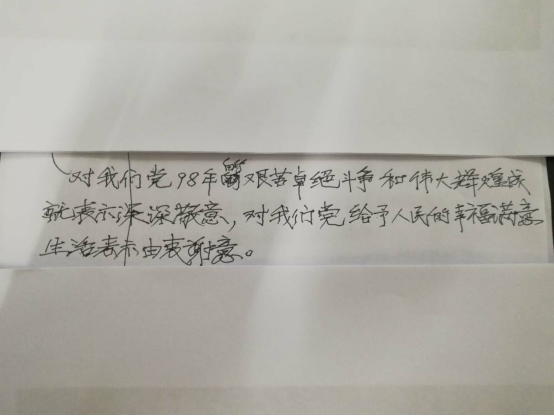 对我们党98年的艰苦卓绝斗争和伟大辉煌成
就表示深深敬意，对我们党给予人民的幸福满意
生活表示由衷谢意。